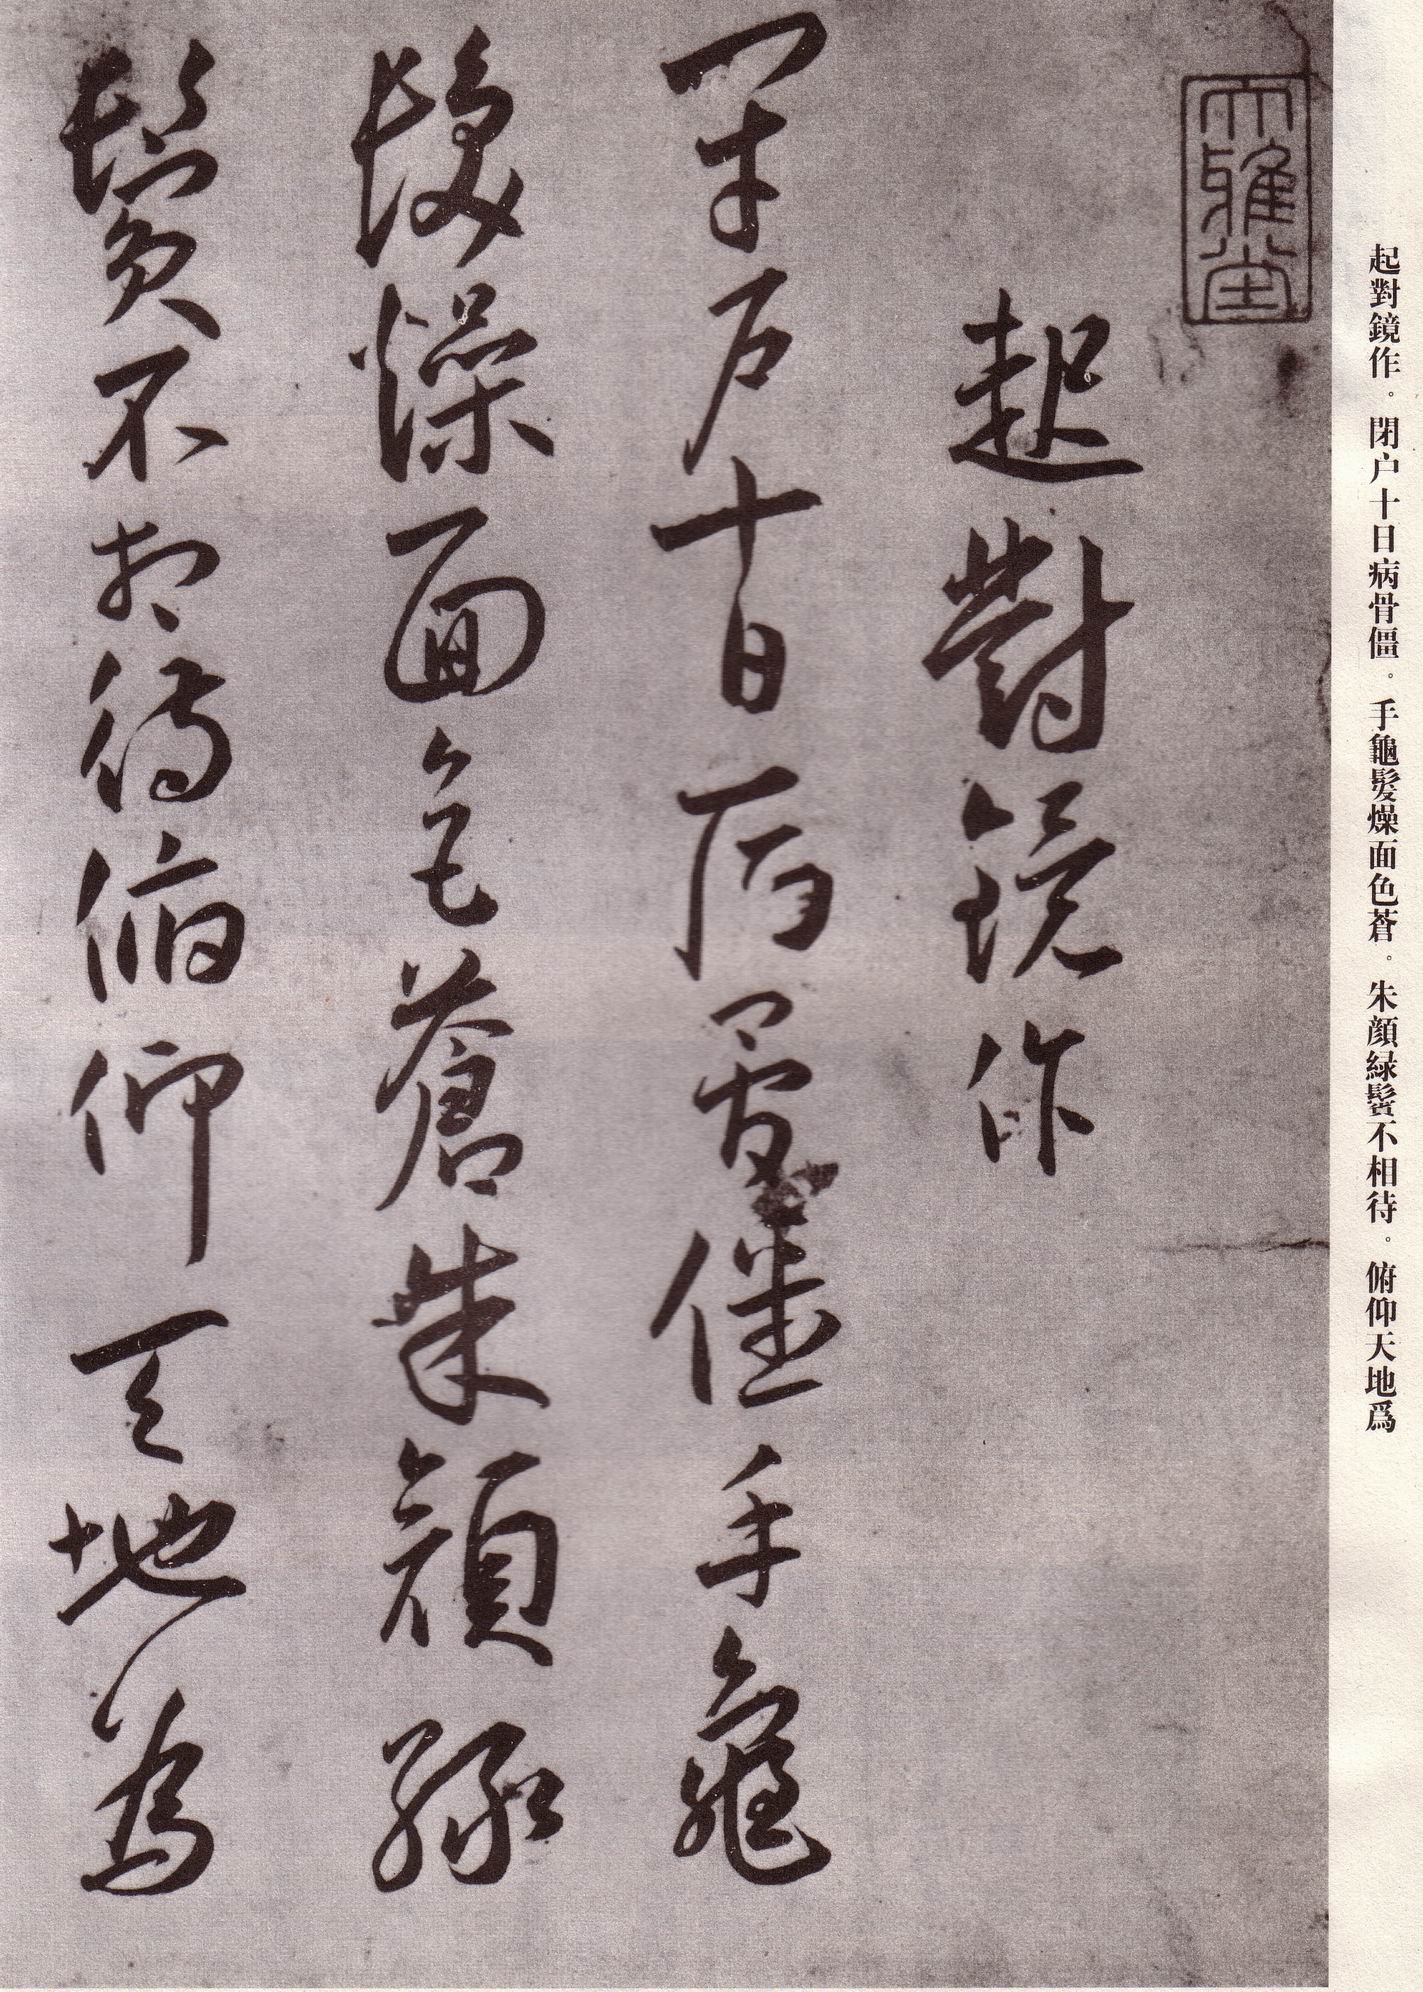 起對鏡作。閉户十日病骨僵。手龜髮燥面色蒼。朱顔緑鬢不相待。俯仰天地爲
大雅堂
起對鏡作
閉户十日病骨僵手龜
髮燥面色蒼朱顔緑
鬢不相待俯仰天地為